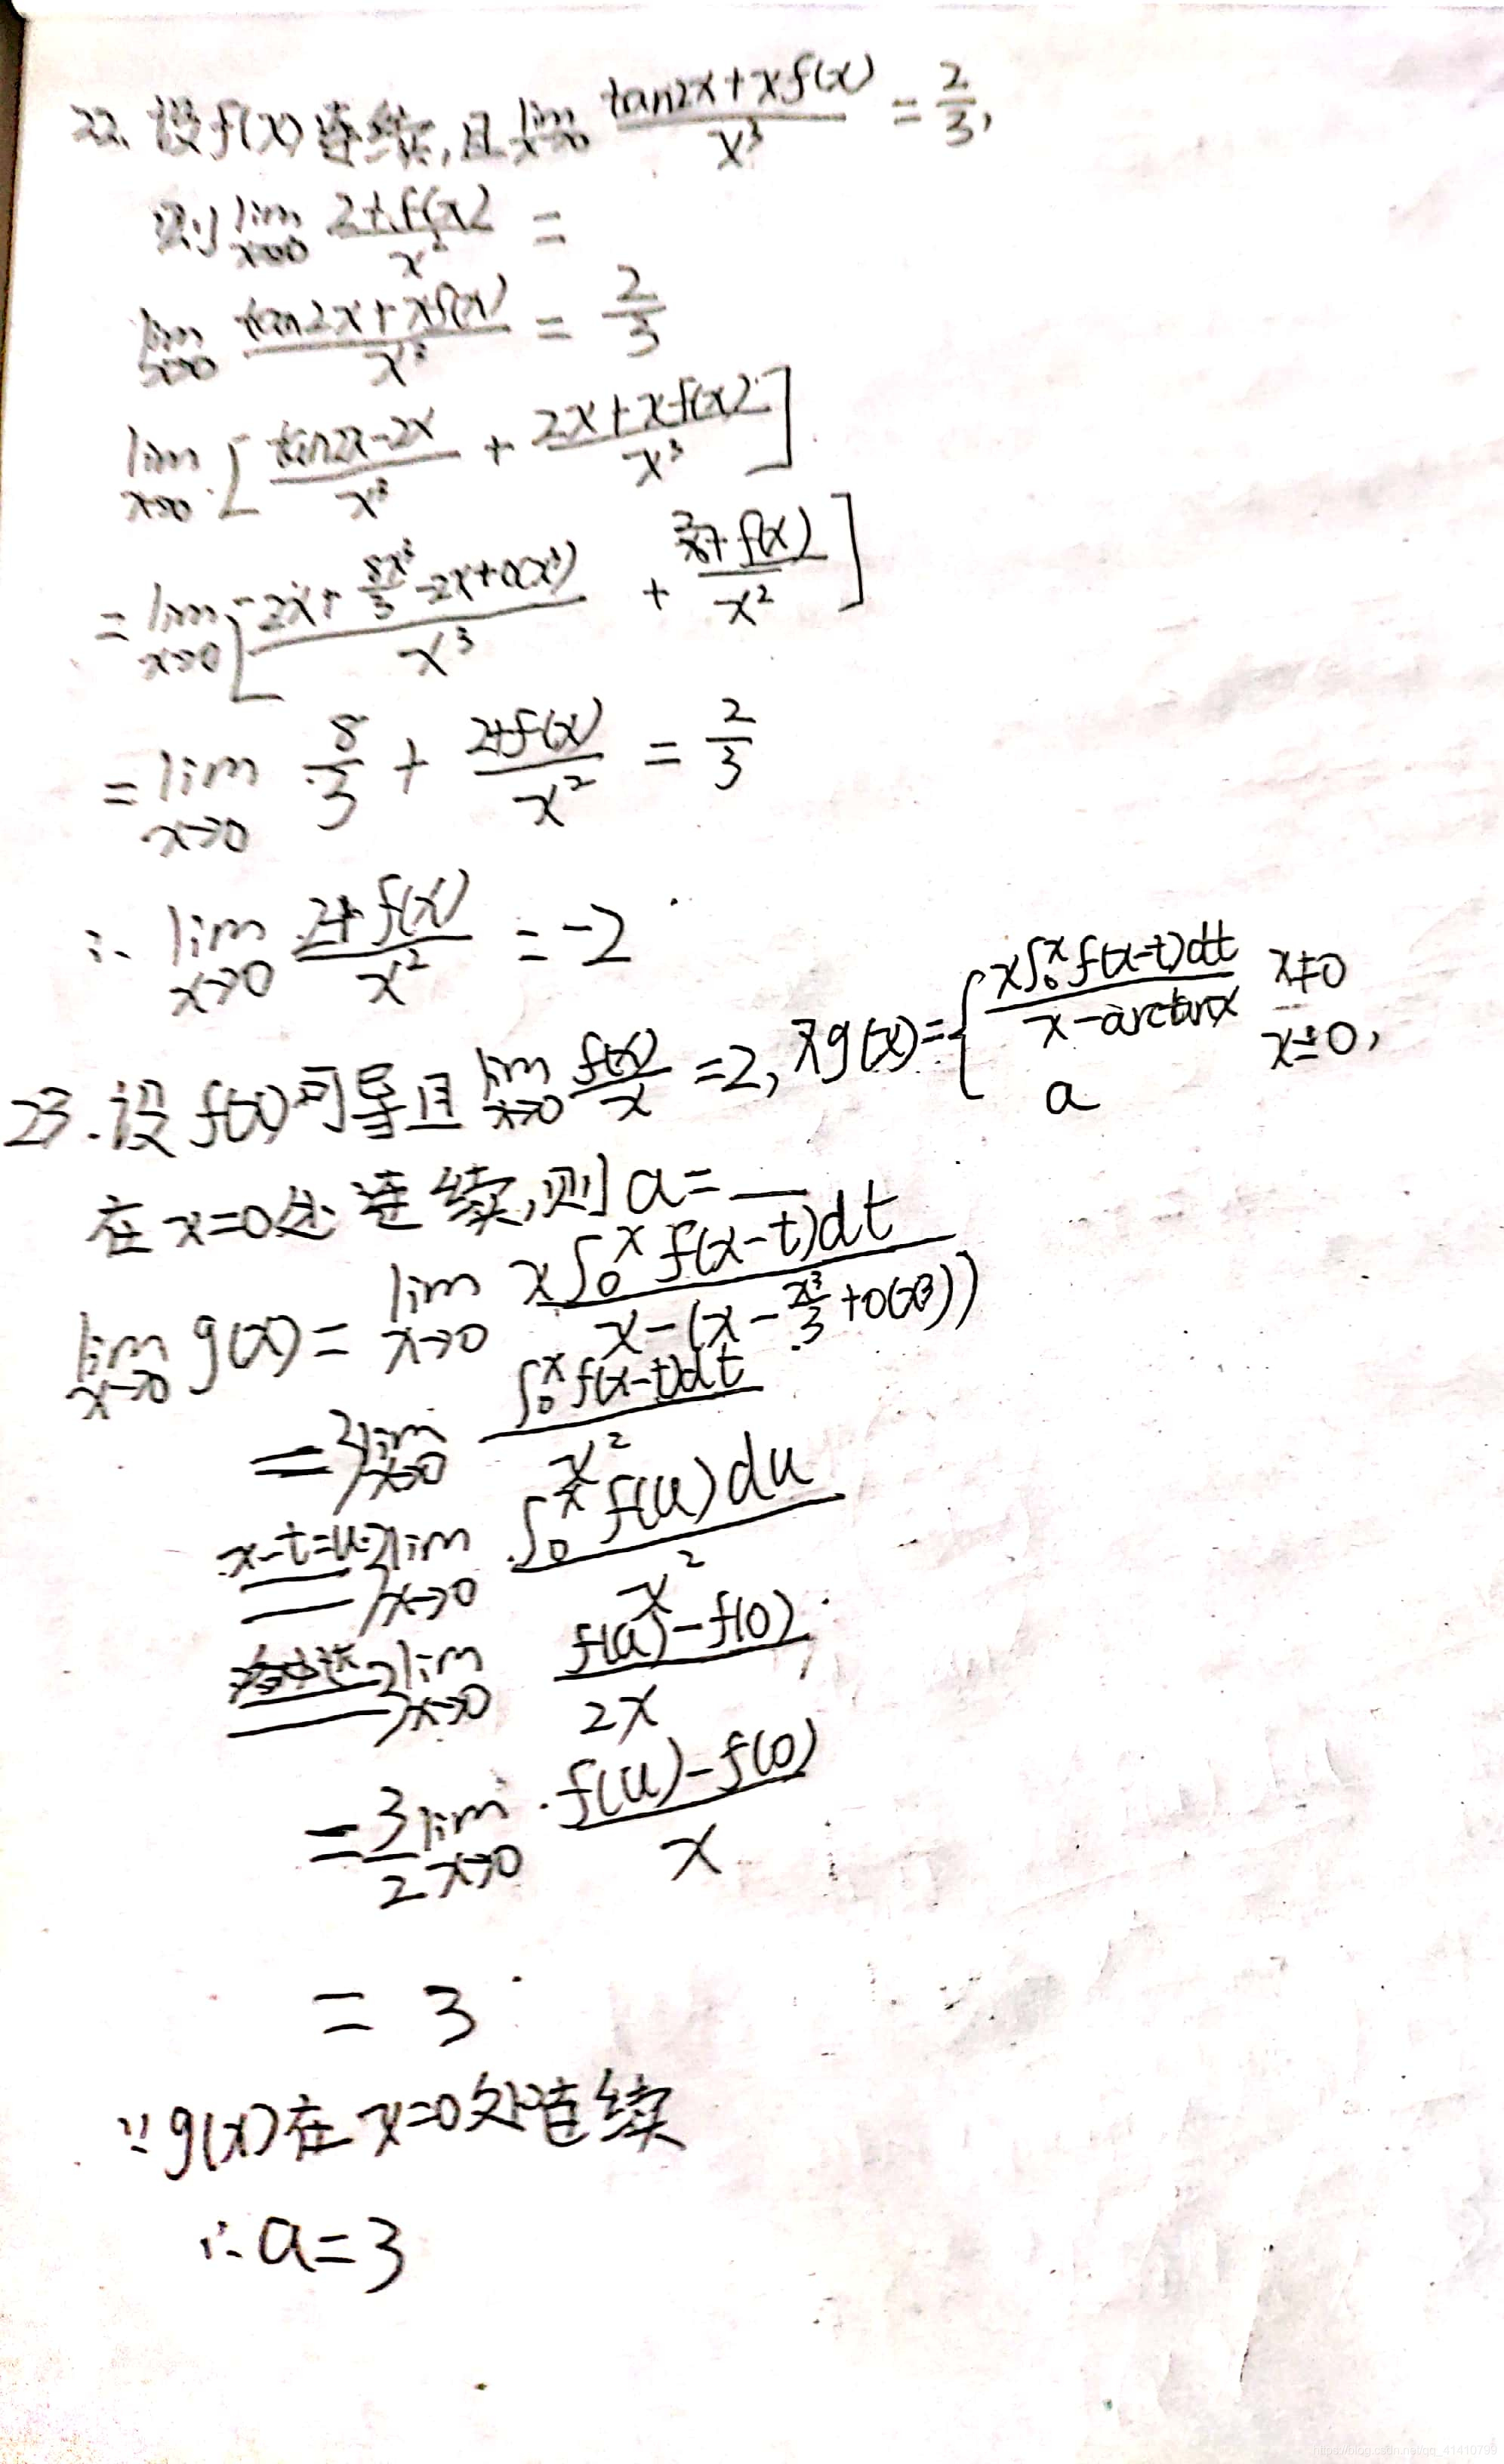 22. 设f(x)连续,且lim_{x→0} (tan2x+xf(x))/x³ = 2/3,
则lim_{x→0} (2+f(x))/x² =
lim_{x→0} (tan2x+xf(x))/x³ = 2/3
lim_{x→0} [(tan2x-2x)/x³ + (2x+xf(x))/x³]
= lim_{x→0} [(2x+8x³/3-2x+o(x³))/x³ + (2+f(x))/x²]
= lim_{x→0} 8/3 + (2+f(x))/x² = 2/3
∴ lim_{x→0} (2+f(x))/x² = -2
23. 设f(x)可导且lim_{x→0} f(x)/x = 2, 又g(x)= { (x∫₀ˣf(x-t)dt)/(x-arctanx) x≠0
a x=0,
在x=0处连续,则a=__
lim_{x→0} g(x) = lim_{x→0} (x∫₀ˣf(x-t)dt)/(x-(x-x³/3+o(x³)))
= 3lim_{x→0} (∫₀ˣf(x-t)dt)/x²
x-t=u 3lim_{x→0} (∫₀ˣf(u)du)/x²
3lim_{x→0} (f(u)-f(0))/2x
= 3/2 lim_{x→0} (f(u)-f(0))/x
= 3
∵g(x)在x=0处连续
∴a=3
https://blog.csdn.net/qq_41410799